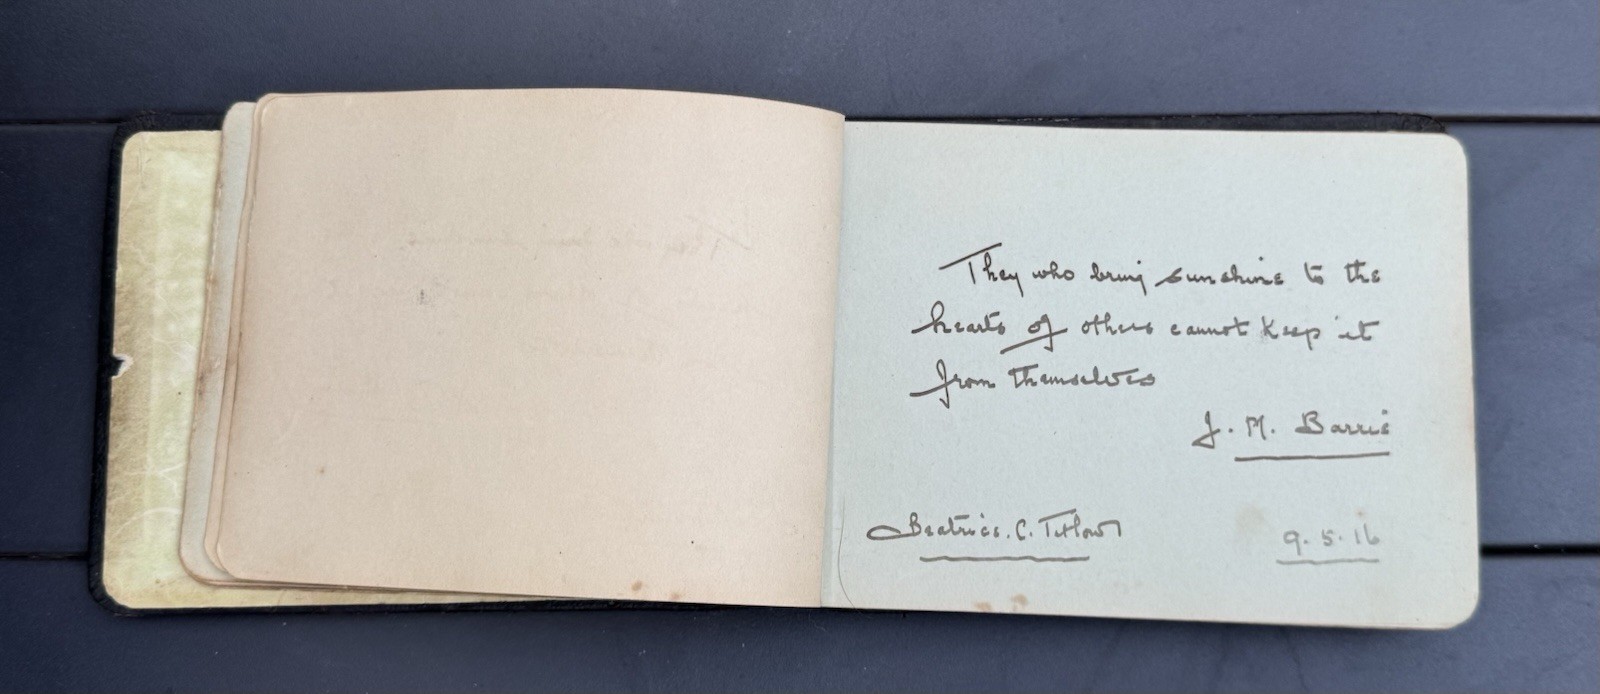 They who bring sunshine to the
hearts of others cannot keep it
from themselves
J. M. Barrie
Beatrice. C. Titlow
9.5.16